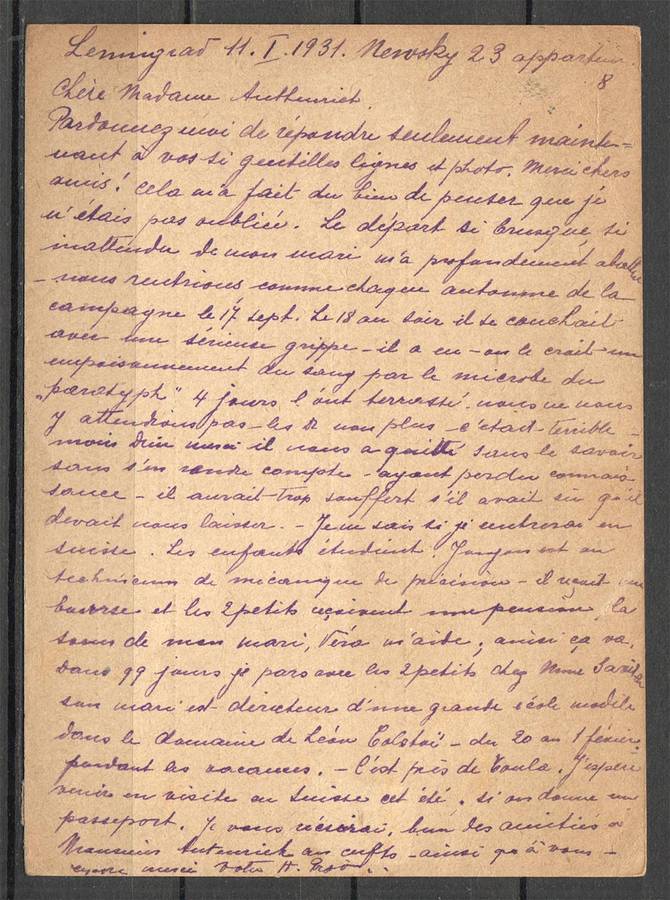 Leningrad 11. I. 1931. Newsky 23 appartem.
8
Chère Madame Authenriet.
Pardonnez moi de répondre seulement mainte-
nant à vos si gentilles lignes et photo. Merci chers
amis! Cela m'a fait du bien de penser que je
n'étais pas oubliée. Le départ si brusque si
inattendu de mon mari m'a profondément
- nous rentrions comme chaque automne de la
campagne le 17 sept. Le 18 au soir il se couchait
avec une sérieuse grippe - il a eu - on le croit un
empoisonnement du sang par le microbe du
"paratyph" 4 jours l'ont terrassé. nous ne nous
y attendions pas - les non plus - c'était terrible -
mais merci il nous a quitté sans le savoir
sans s'en rendre compte - ayant perdu connais-
sance - il aurait trop souffert s'il avait su qu'il
devait nous laisser. - Je ne sais si je rentrerai en
Suisse. Les enfants étudient. est au
technicum de mécanique de précision - il reçoit une
bourse et les 2 petits reçoivent une pension, la
soeur de mon mari, Véra m'aide, ainsi ça va.
Dans jours je pars avec les 2 petits chez Mme
son mari est directeur d'une grande école modèle
dans le domaine de Léon Tolstoï - du 20 au 1 février
pendant les vacances. - C'est près de Toula. J'espère
venir en visite en Suisse cet été, si on donne un
passeport. Je vous écrirai, bien des amitiés à
Monsieur Autenriet aux enfts - ainsi qu'à vous -
encore merci votre H.